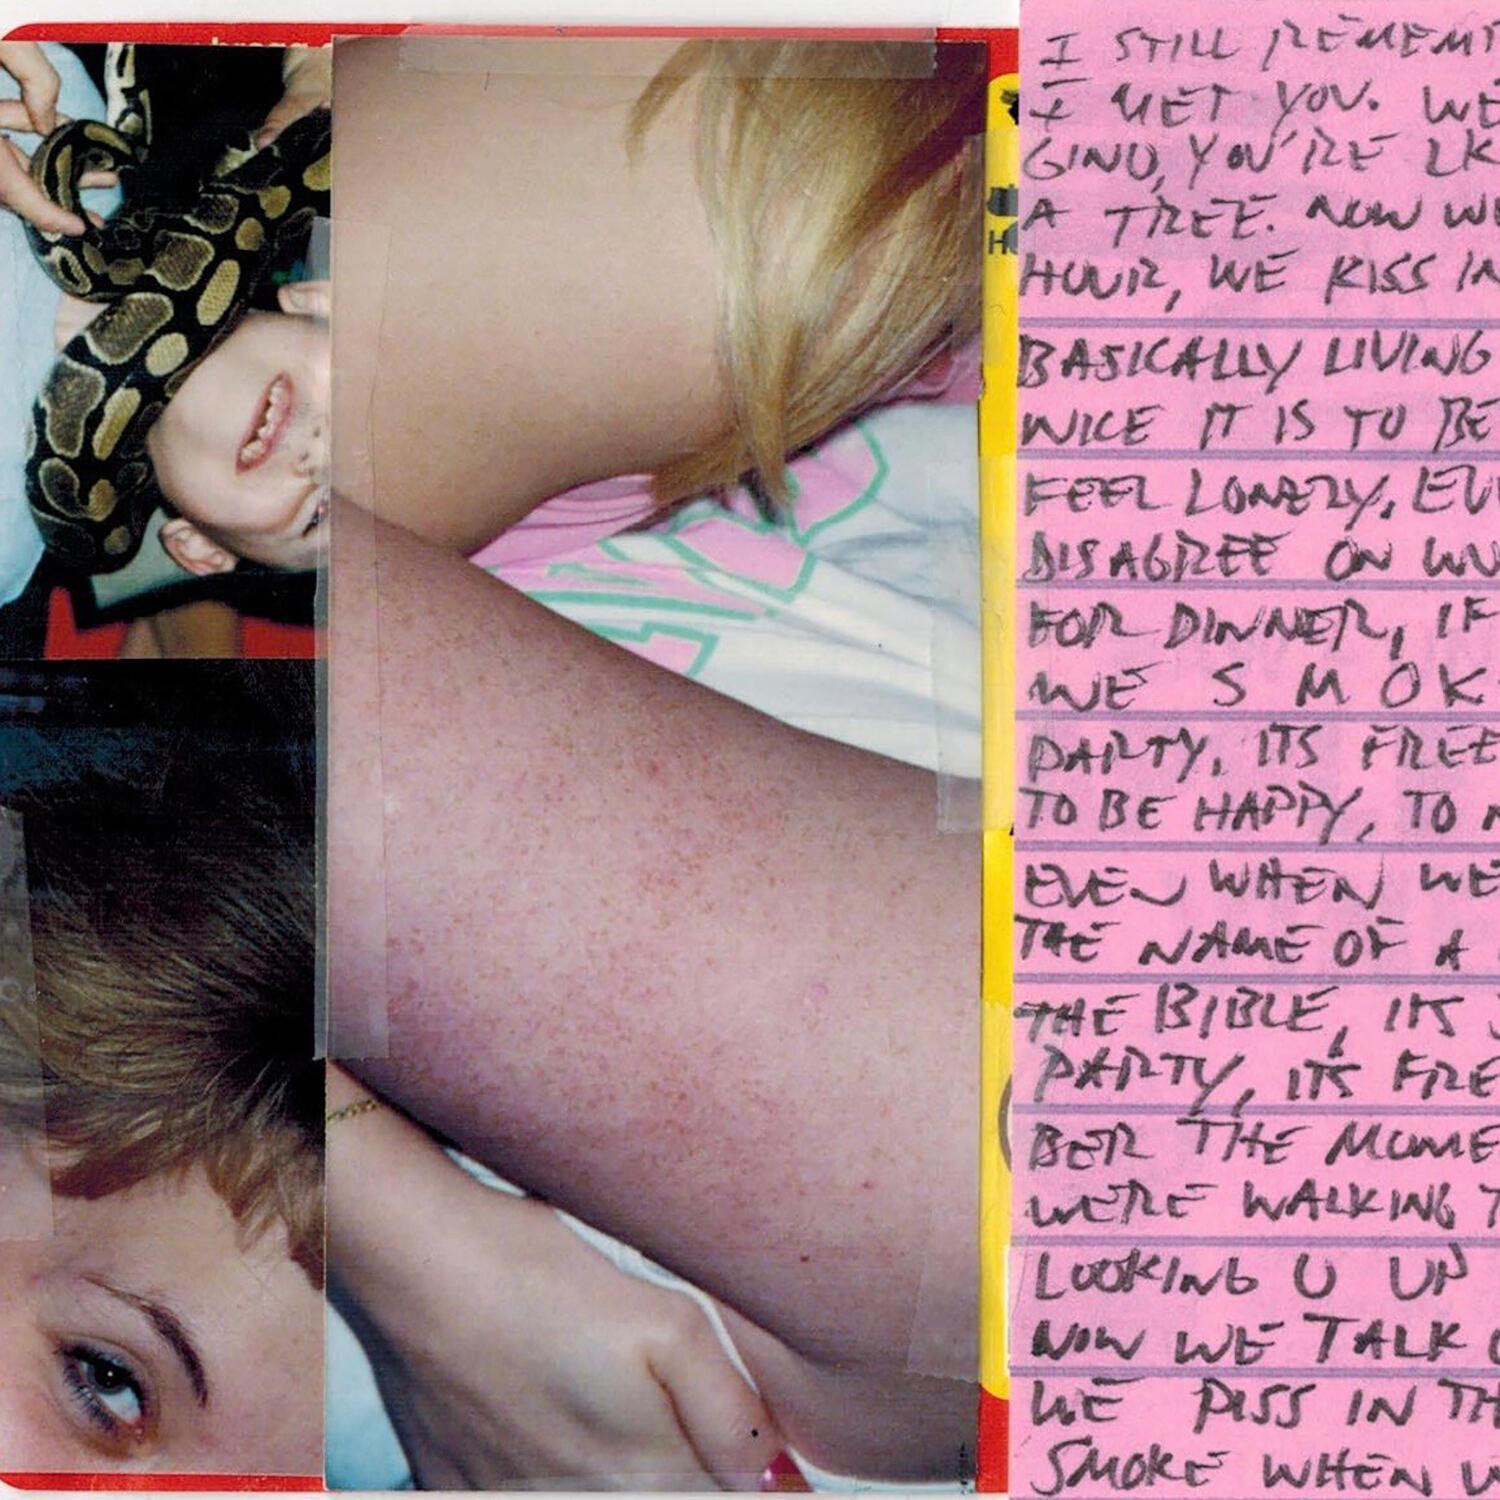 I STILL REMEMB
I MET YOU. WE
GINO, YOU'RE LK
A TREE. NOW WE
HOUR, WE KISS IN
BASICALLY LIVING
NICE IT IS TO BE
FEEL LONELY. EV
DISAGREE ON WH
FOR DINNER, IF
WE SMOK
PARTY, ITS FREE
TO BE HAPPY, TO
EVEN WHEN WE
THE NAME OF A
THE BIBLE, ITS
PARTY, ITS FRE
BER THE MOME
WERE WALKING T
LOOKING U UP
NOW WE TALK
WE PISS IN TH
SMOKE WHEN W